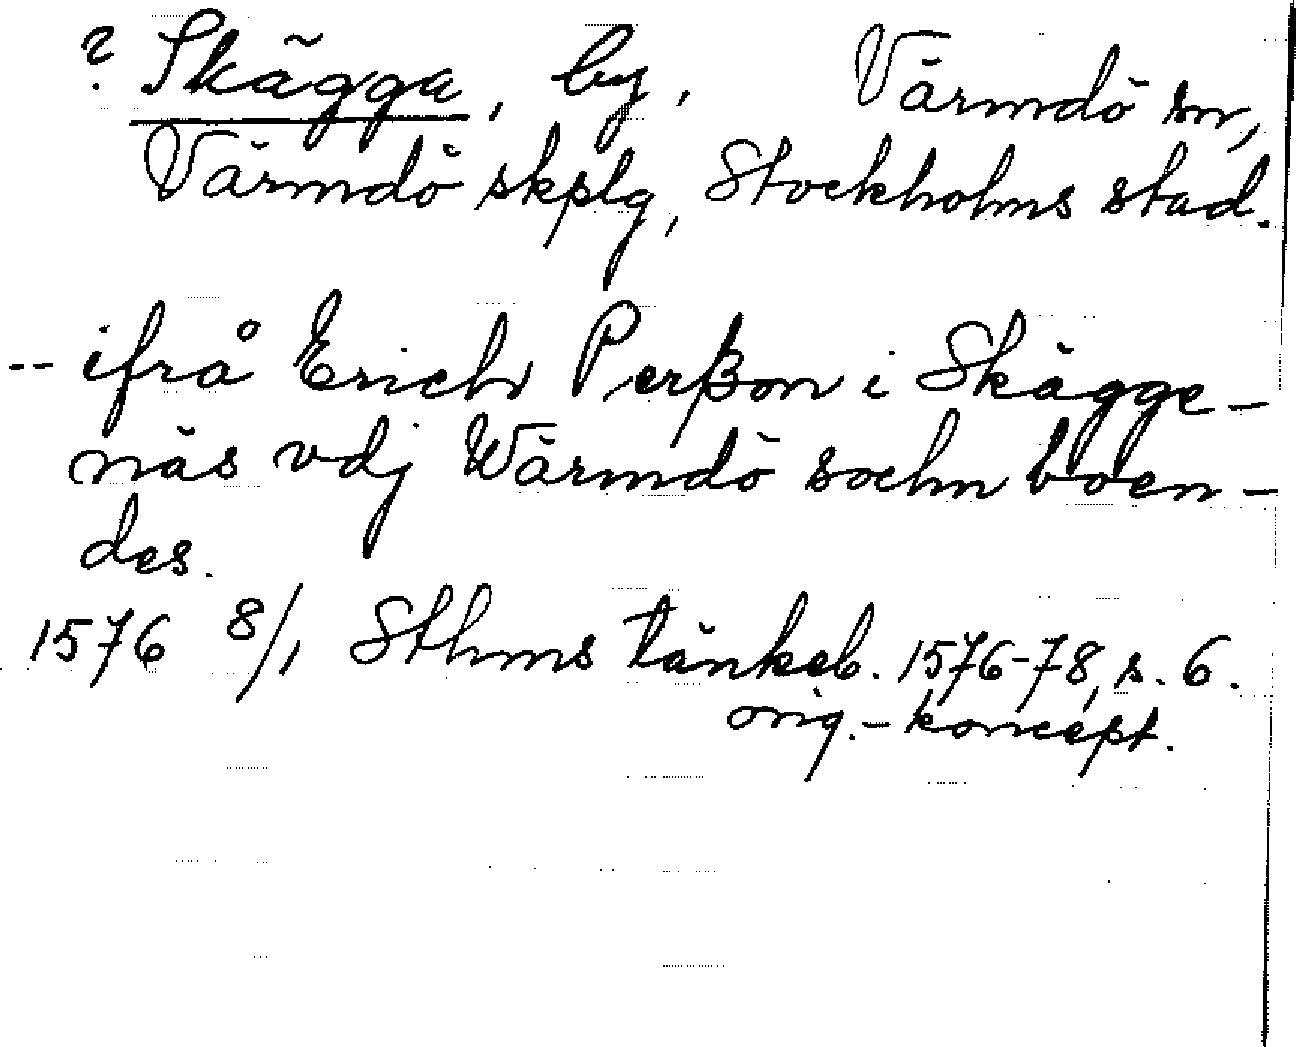 ? Skägga, by, Värmdö sn,
Värmdö skplg, Stockholms stad.
-- ifrå Erich Perßon i Skägge-
näs vdj Wärmdö sochn boen-
des.
1576 8/1 Sthms tänkeb. 1576-78, s. 6.
orig.-koncept.